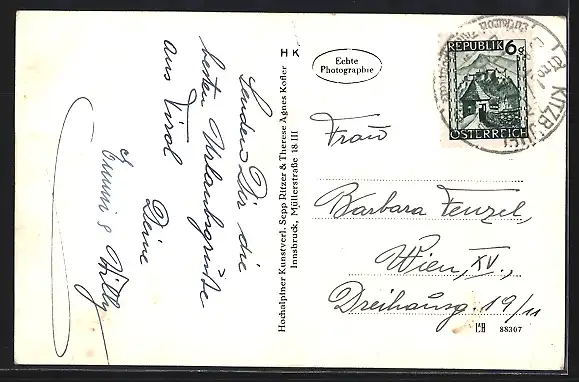 Senden Dir die
besten Urlaubsgrüße
aus Tirol
Deine
Emmi & Willy
H K
Hochalpiner Kunstverl. Sepp Ritzer & Therese Agnes Kofler
Innsbruck, Müllerstraße 18 III
Echte
Photographie
REPUBLIK 6g
ÖSTERREICH
KITZBÜHEL
Frau
Barbara Fenzel,
Wien, XV.,
Dreihausg. 19/11
88307